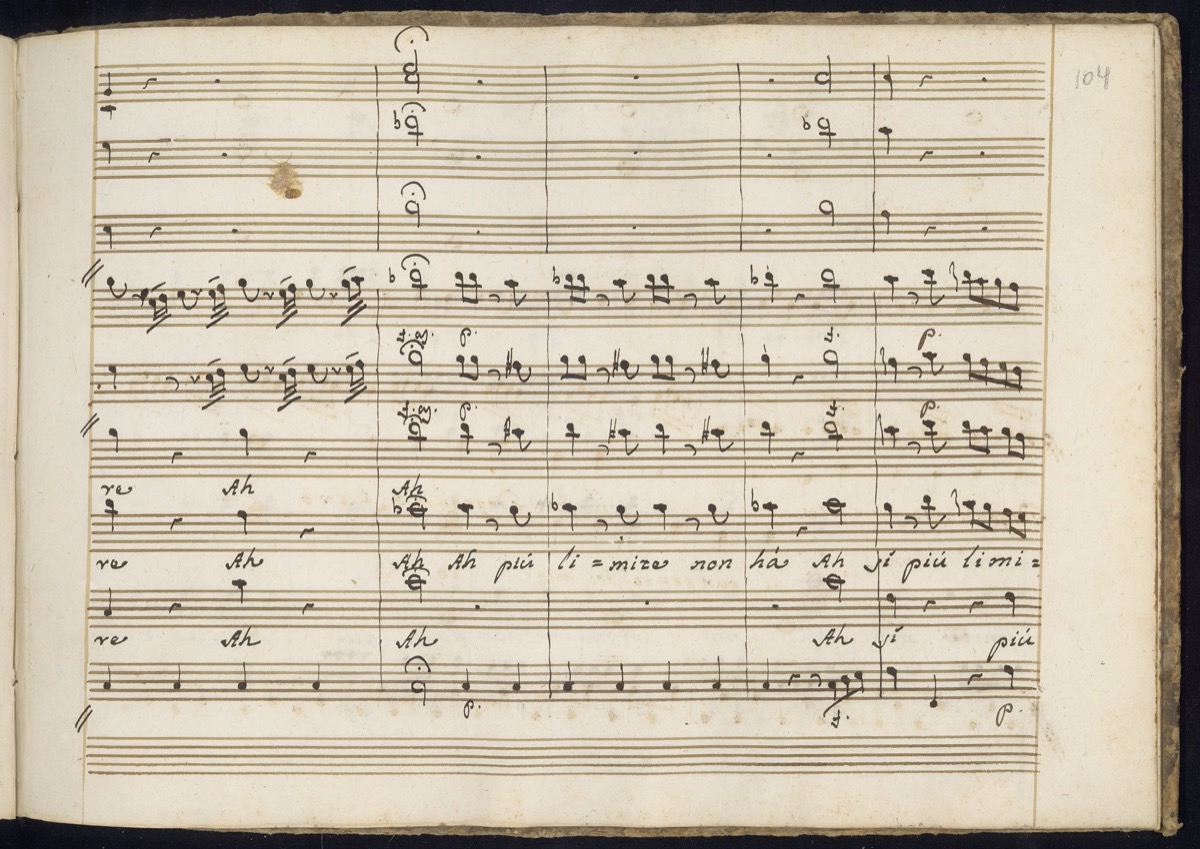 104
p.
p.
p.
p.
re Ah Ah
re Ah Ah Ah più li = mite non hà Ah sì più li mi =
re Ah Ah Ah sì più
p. p